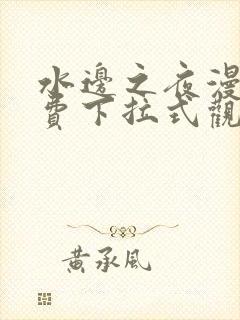 水邊之夜漫
費下拉式觀
黃承風